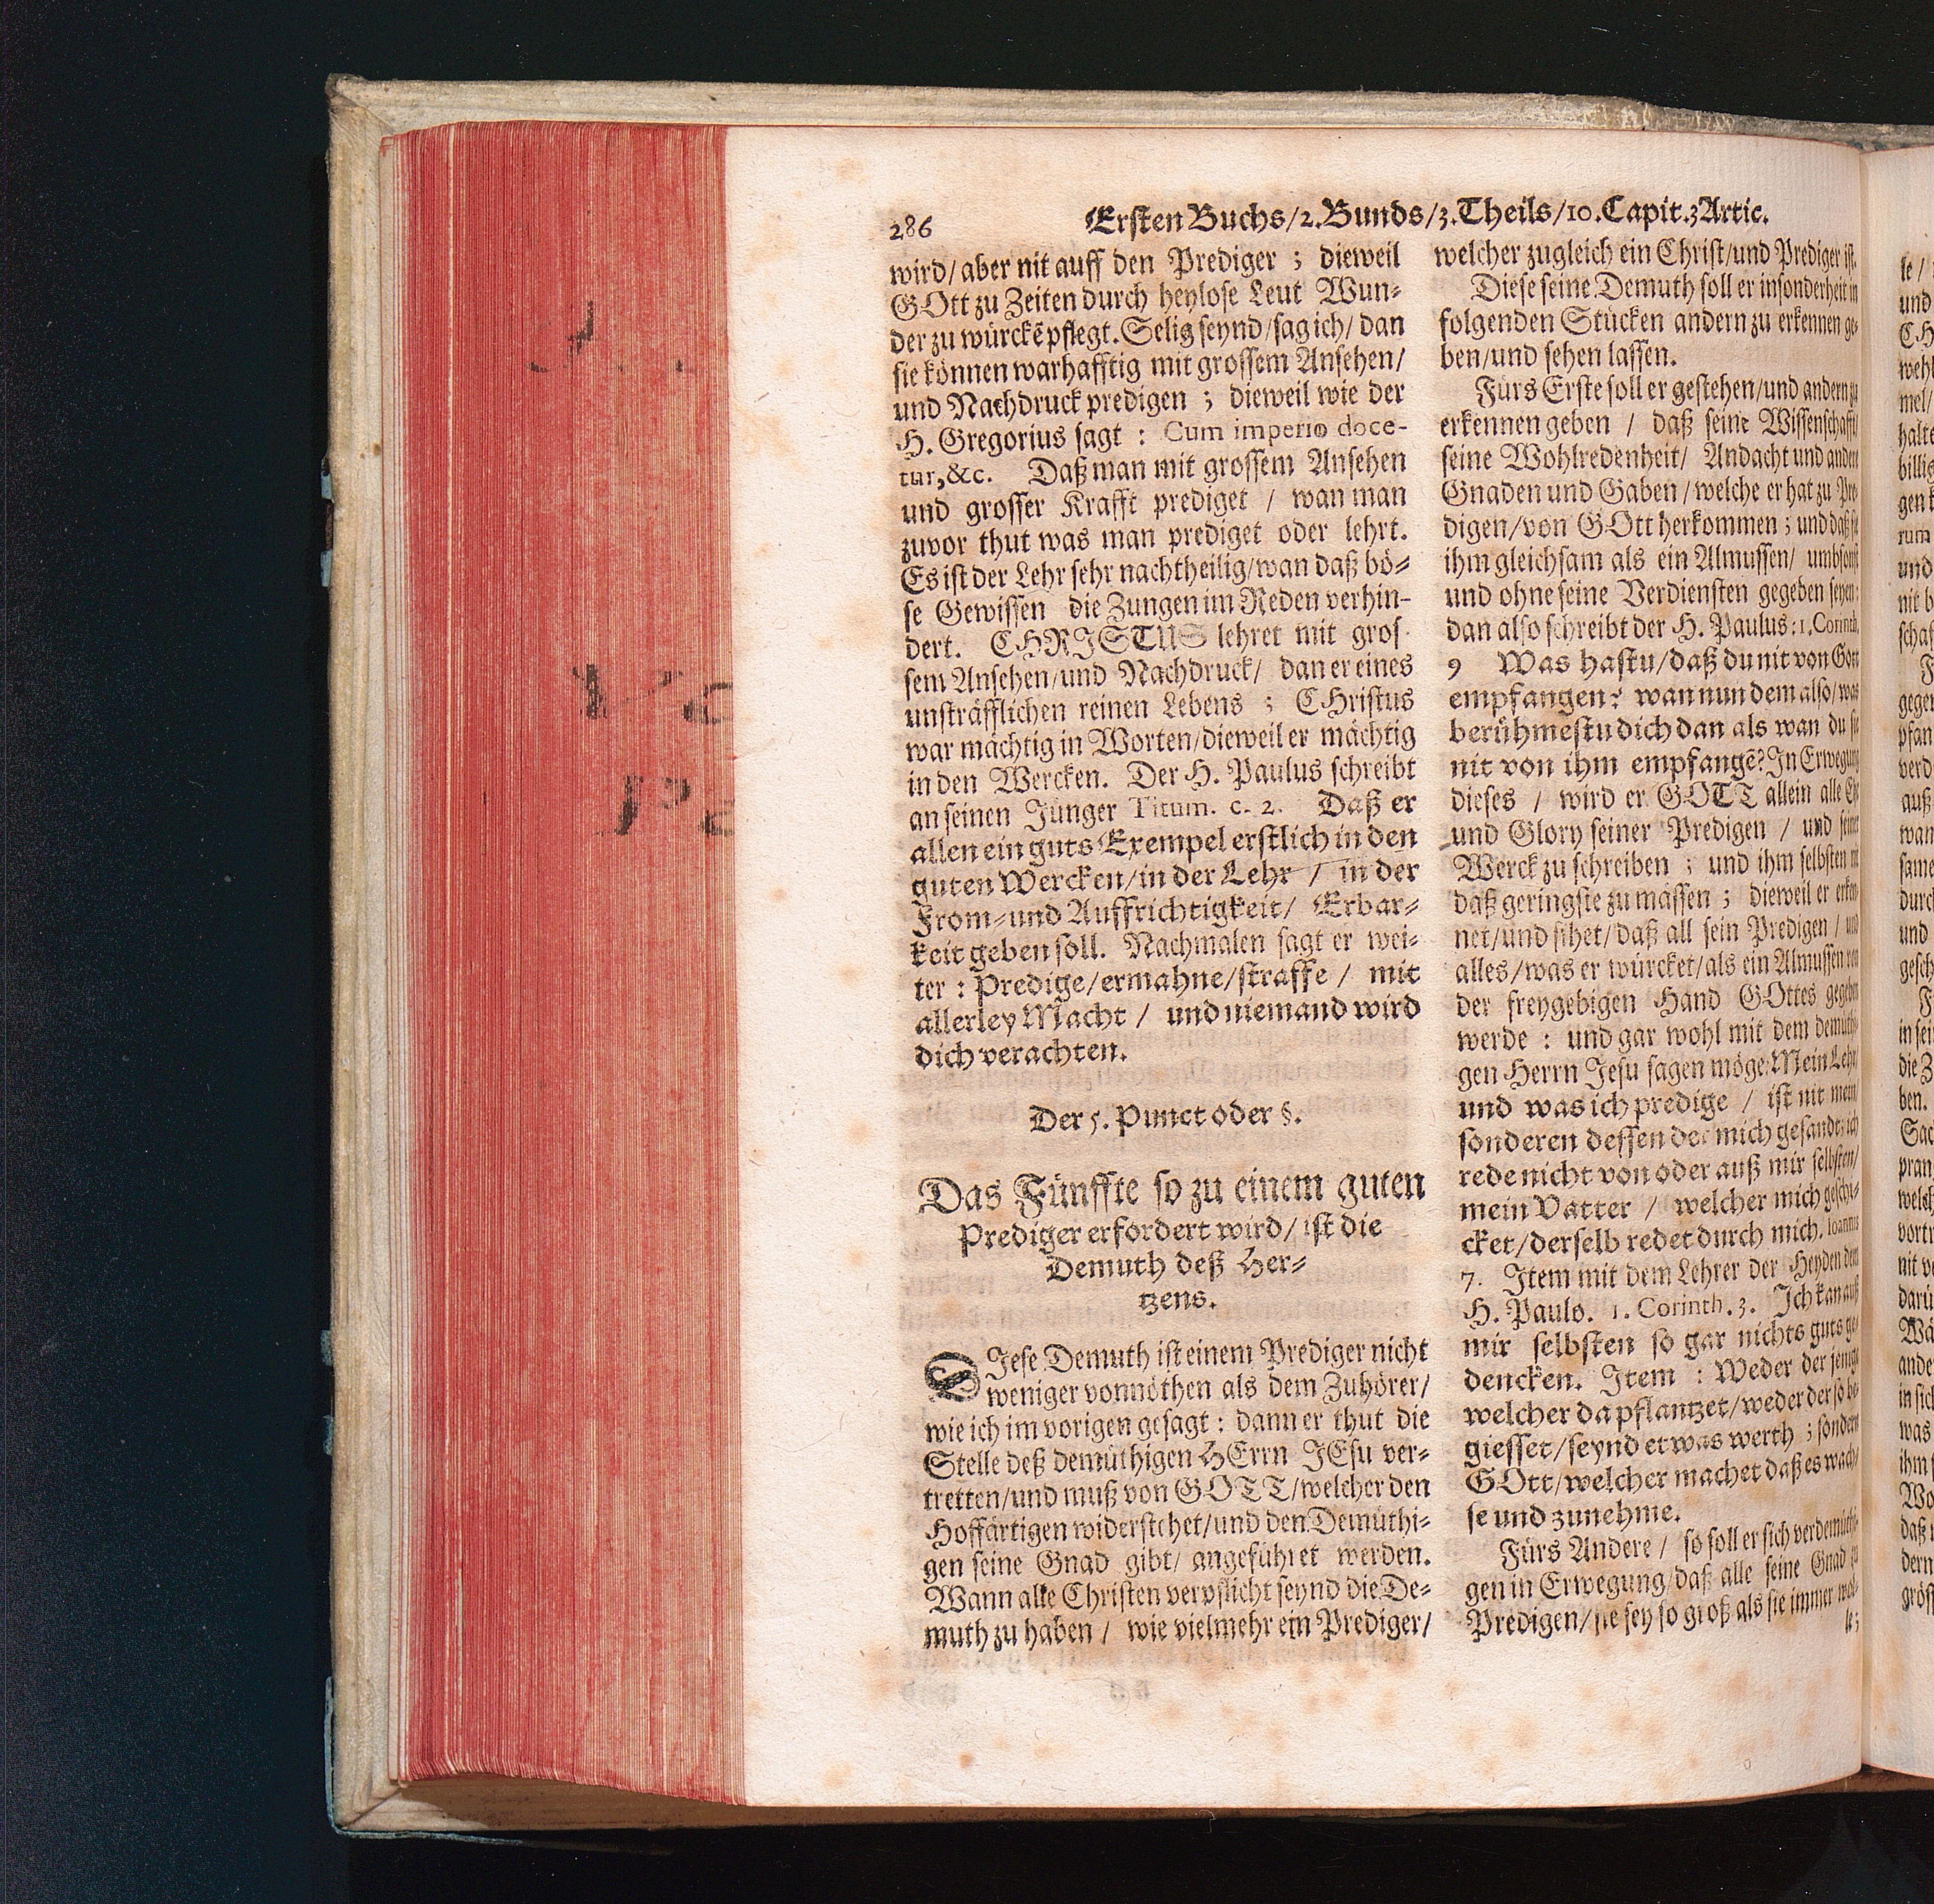 286
Ersten Buchs/2. Bunds/3. Theils/10. Capit. 3 Artic.
wird/ aber nit auff den Prediger ; dieweil
GOtt zu Zeiten durch heylose Leut Wun-
der zu würckẽ pflegt. Selig seynd/ sag ich/ dan
sie können warhafftig mit grossem Ansehen/
und Nachdruck predigen ; dieweil wie der
H. Gregorius sagt : Cum imperio doce-
tur, &c. Daß man mit grossem Ansehen
und grosser Krafft prediget / wan man
zuvor thut was man prediget oder lehrt.
Es ist der Lehr sehr nachtheilig/ wan daß bö-
se Gewissen die Zungen im Reden verhin-
dert. CHRISTUS lehret mit gros-
sem Ansehen/und Nachdruck/ dan er eines
unsträfflichen reinen Lebens ; CHristus
war mächtig in Worten/dieweil er mächtig
in den Wercken. Der H. Paulus schreibt
an seinen Jünger Titum. c. 2. Daß er
allen ein guts Exempel erstlich in den
guten Wercken/in der Lehr / in der
From- und Auffrichtigkeit/ Erbar-
keit geben soll. Nachmalen sagt er wei-
ter : Predige/ermahne/straffe / mit
allerley Macht / und niemand wird
dich verachten.
Der 5. Punct oder §.
Das Fünffte so zu einem guten
Prediger erfordert wird/ ist die
Demuth deß Her-
tzens.
DIese Demuth ist einem Prediger nicht
weniger vonnöthen als dem Zuhörer/
wie ich im vorigen gesagt : dann er thut die
Stelle deß demüthigen HErrn JEsu ver-
tretten/und muß von GOTT/welcher den
Hoffärtigen widerstehet/und den Demüthi-
gen seine Gnad gibt/ angeführet werden.
Wann alle Christen verpflicht seynd die De-
muth zu haben / wie vielmehr ein Prediger/
welcher zugleich ein Christ/und Prediger ist.
Diese seine Demuth soll er insonderheit in
folgenden Stücken andern zu erkennen ge-
ben/und sehen lassen.
Fürs Erste soll er gestehen/und andern zu
erkennen geben / daß seine Wissenschafft/
seine Wohlredenheit/ Andacht und andere
Gnaden und Gaben / welche er hat zu Pre-
digen/von GOtt herkommen ; und daß sie
ihm gleichsam als ein Almussen/ umbsonst
und ohne seine Verdiensten gegeben seyen:
dan also schreibt der H. Paulus: 1. Corinth.
9 Was hastu/daß du nit von Gott
empfangen? wan nun dem also/ was
berühmestu dich dan als wan du sie
nit von ihm empfangẽ? In Erwegung
dieses / wird er GOTT allein alle Ehr
und Glory seiner Predigen / und seiner
Werck zu schreiben ; und ihm selbsten nit
daß geringste zu mässen ; dieweil er erken-
net/und sihet/daß all sein Predigen / und
alles/was er würcket/als ein Almussen von
der freygebigen Hand GOttes gegeben
werde : und gar wohl mit dem demüthi-
gen Herrn Jesu sagen möge: Mein Lehr/
und was ich predige / ist nit mein
sonderen dessen der mich gesandt; ich
rede nicht von oder auß mir selbsten/
mein Vatter / welcher mich geschi-
cket/derselb redet durch mich. Ioannis
7. Item mit dem Lehrer der Heyden dem
H. Paulo. 1. Corinth. 3. Ich kan auß
mir selbsten so gar nichts guts ge-
dencken. Item : Weder der jenige
welcher da pflantzet/weder der so be-
giesset/seynd etwas werth ; sondern
GOtt/welcher machet daß es wach-
se und zunehme.
Fürs Andere / so soll er sich verdemüthi-
gen in Erwegung/daß alle seine Gnad zu
Predigen/ sie sey so groß als sie immer wöl-
le ;